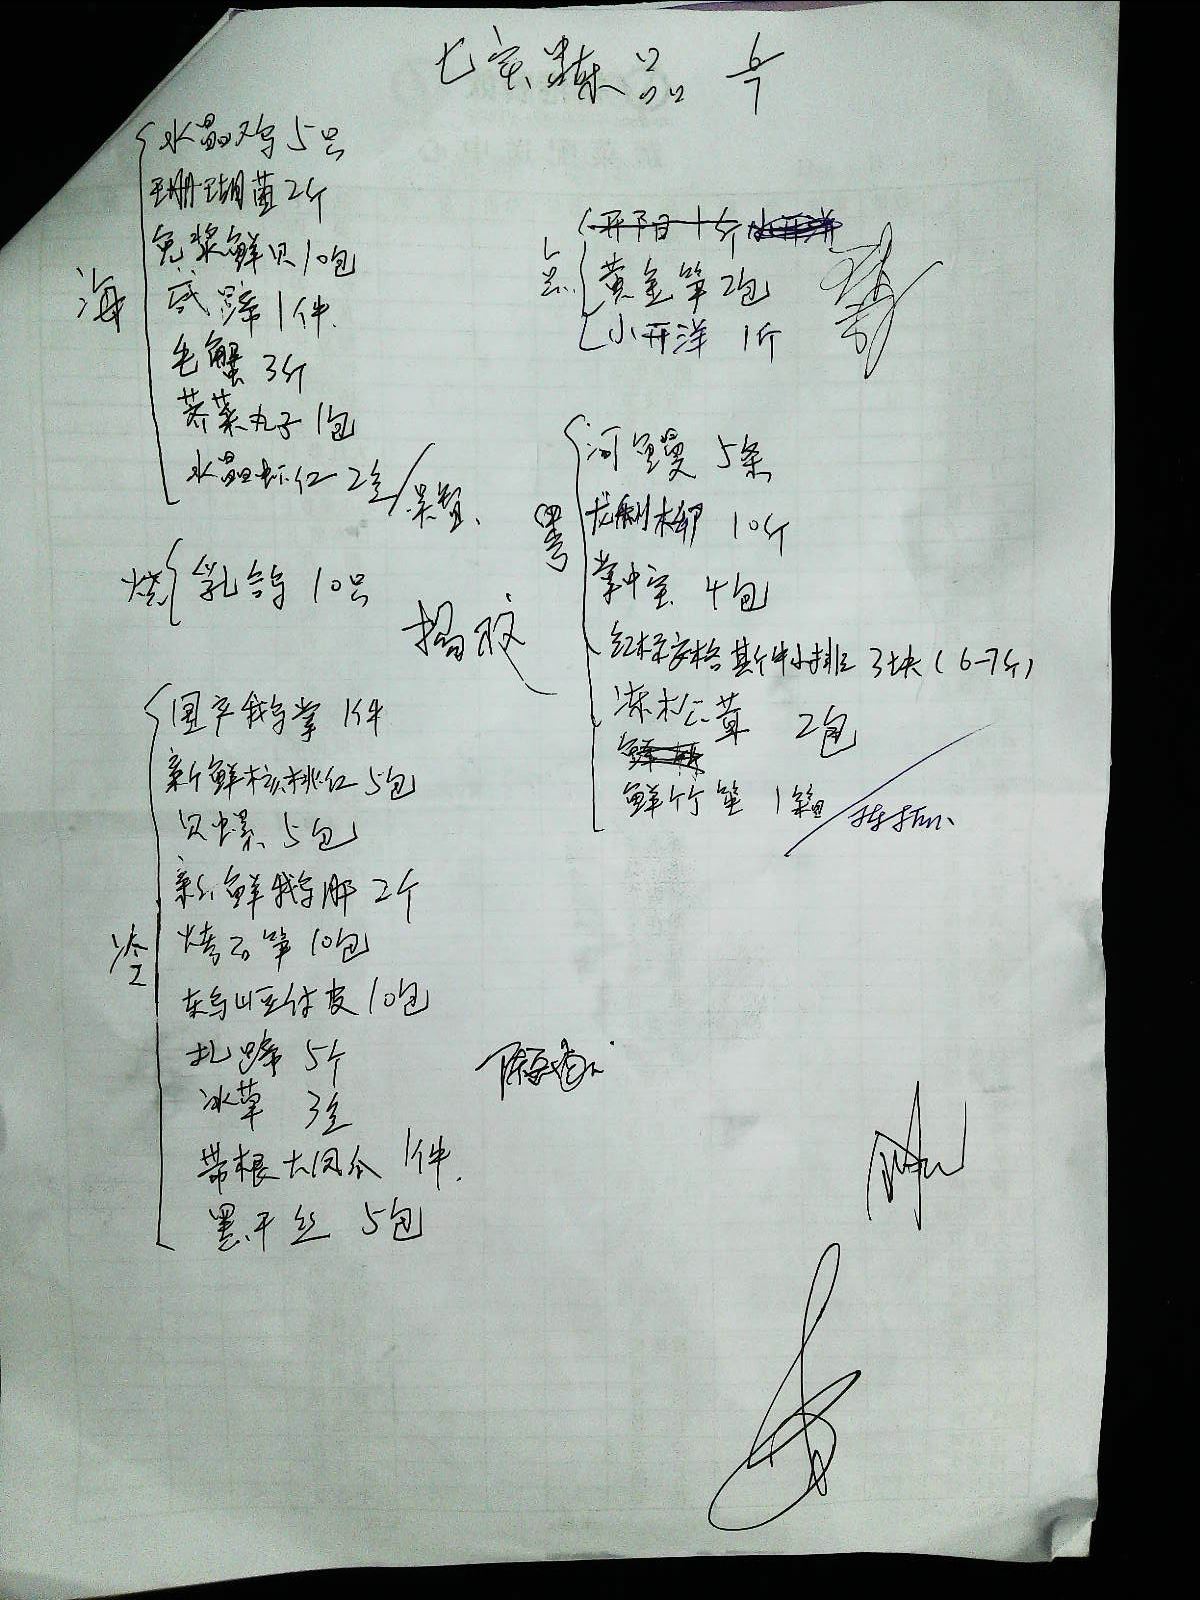 七宝冻品 6/7
海
水晶鸡 5只
珊瑚菌 2斤
免浆鲜贝 10包
咸蹄 1件
毛蟹 3斤
荠菜丸子 1包
水晶虾仁 2盒
烧
乳鸽 10只
冷
国产鹅掌 1件
新鲜核桃仁 5包
贝螺 5包
新鲜鹅肝 2个
烤石笋 10包
东乌山豆付皮 10包
扎蹄 5个
冰草 3盒
带根大凤爪 1件
墨干丝 5包
点
黄金笋 2包
小开洋 1斤
粤
河鳗 5条
龙利柳 10斤
掌中宝 4包
红标安格斯牛小排 3块(6-7斤)
冻松茸 2包
鲜竹笙 1箱